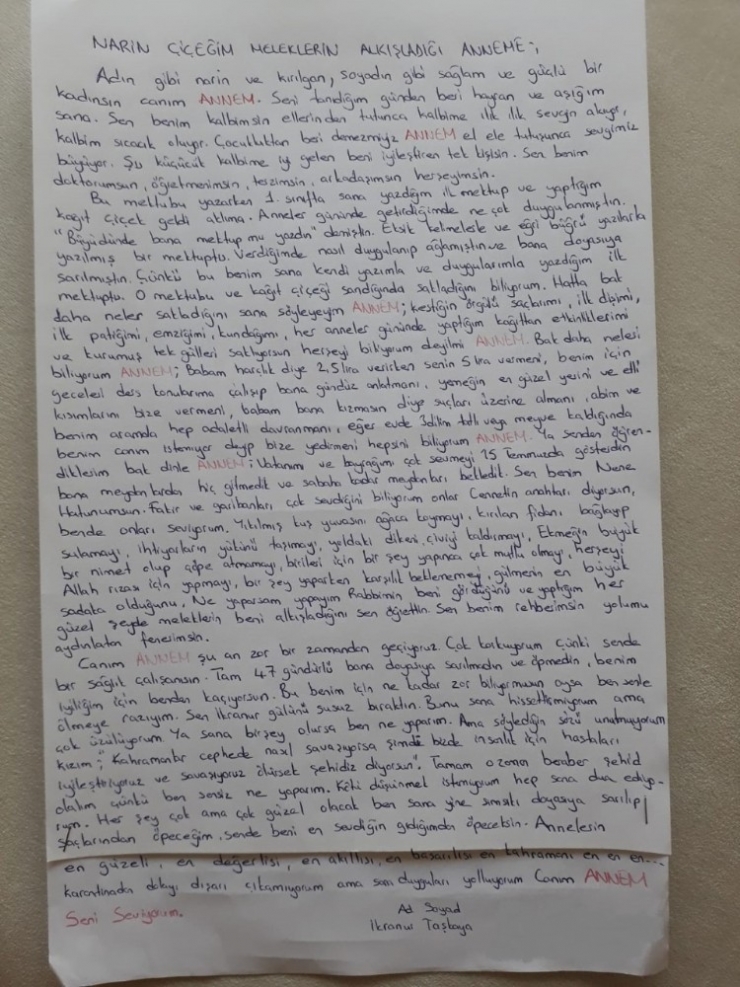 NARİN ÇİÇEĞİM MELEKLERİN ALKIŞLADIĞI ANNEME;
Adın gibi narin ve kırılgan, soyadın gibi sağlam ve güçlü bir
kadınsın canım ANNEM. Seni tanıdığım günden beri hayran ve aşığım
sana. Sen benim kalbimsin ellerinden tutunca kalbime ılık ılık sevgin akıyor,
kalbim sıcacık oluyor. Çocukluktan beri denezmiyiz ANNEM el ele tutuşunca sevgimiz
büyüyor. Şu küçücük kalbime iyi gelen beni iyileştiren tek kişisin. Sen benim
doktorumsun, öğretmenimsin, terzimsin, arkadaşımsın herşeyimsin.
Bu mektubu yazarken 1. sınıfta sana yazdığım ilk mektup ve yaptığım
kağıt çiçek geldi aklıma. Anneler gününde getirdiğimde ne çok duygulanmıştın.
"Büyüdünde bana mektup mu yazdın" demiştin. Eksik kelimelerle ve eğri büğrü yazılarla
yazılmış bir mektuptu. Verdiğimde nasıl duygulanıp ağlamıştın ve bana doyasıya
sarılmıştın. Çünkü bu benim sana kendi yazımla ve duygularımla yazdığım ilk
mektuptu. O mektubu ve kağıt çiçeği sandığında sakladığını biliyorum. Hatta bak
daha neler sakladığını sana söyleyeyim ANNEM; kestiğin örgülü saçlarımı, ilk dişimi,
ilk patiğimi, emziğimi, kundağımı, her anneler gününde yaptığım kağıttan etkinliklerimi
ve kurumuş tek gülleri saklıyorsun herşeyi biliyorum değilmi ANNEM. Bak daha neleri
biliyorum ANNEM; Babam harçlık diye 2,5 lira verirken senin 5 lira vermeni, benim için
geceleri ders konularıma çalışıp bana gündüz anlatmanı, yemeğin en güzel yerini ve etli
kısımlarını bize vermeni, babam bana kızmasın diye suçları üzerine almanı, abim ve
benim aramda hep adaletli davranmanı, eğer evde 3 dilim tatlı veya meyve kaldığında
benim canım istemiyor deyip bize yedirmeni hepsini biliyorum ANNEM. Ya senden öğren-
diklerim bak dinle ANNEM; Vatanımı ve bayrağımı çok sevmeyi 15 Temmuzda gösterdin
bana meydanlarda hiç gitmedik ve sabaha kadar meydanları bekledik. Sen benim Nene
Hatunumsun. Fakir ve garibanları çok sevdiğini biliyorum onlar Cennetin anahtarı diyorsun,
bende onları seviyorum. Yıkılmış kuş yuvasını ağaca koymayı, kırılan fidanı bağlayıp
sulamayı, ihtiyarların yükünü taşımayı, yoldaki dikeni, çiviyi kaldırmayı, Ekmeğin büyük
bir nimet olup çöpe atmamayı, birileri için bir şey yapınca çok mutlu olmayı, herşeyi
Allah rızası için yapmayı, bir şey yaparken karşılık beklenemeyi, gülmenin en büyük
sadaka olduğunu, Ne yaparsam yapayım Rabbimin beni gördüğünü ve yaptığım her
güzel şeyde meleklerin beni alkışladığını sen öğrettin. Sen benim rehberimsin yolumu
aydınlatan fenerimsin.
Canım ANNEM şu an zor bir zamandan geçiyoruz. Çok korkuyorum çünki sende
bir sağlık çalışansın. Tam 47 gündürlü bana doyasıya sarılmadın ve öpmedin, benim
iyiliğim için benden kaçıyorsun. Bu benim için ne kadar zor biliyormusun oysa ben senle
ölmeye razıyım. Sen İkranur gülünü susuz bıraktın. Bunu sana hissettirmiyorum ama
çok üzülüyorum. Ya sana birşey olursa ben ne yaparım. Ama söylediğin sözü unutmuyorum
kızım; "Kahramanlar cephede nasıl savaşıyorsa şimdi bizde insanlık için hastaları
iyileştiriyoruz ve savaşıyoruz ölürsek şehidiz diyorsun". Tamam o zaman beraber şehid
olalım çünkü ben sensiz ne yaparım. Kötü düşünmek istemiyorum hep sana dua ediyo-
rum. Her şey çok ama çok güzel olacak ben sana yine sımsıkı doyasıya sarılıp
saçlarından öpeceğim, sende beni en sevdiğin gıdığımdan öpeceksin. Annelerin
en güzeli, en değerlisi, en akıllısı, en başarılısı en kahramanı en en en...
karantinada dolayı dışarı çıkamıyorum ama sana duyguları yolluyorum Canım ANNEM
Seni Seviyorum.
Ad Soyad
İkranur Taşkaya